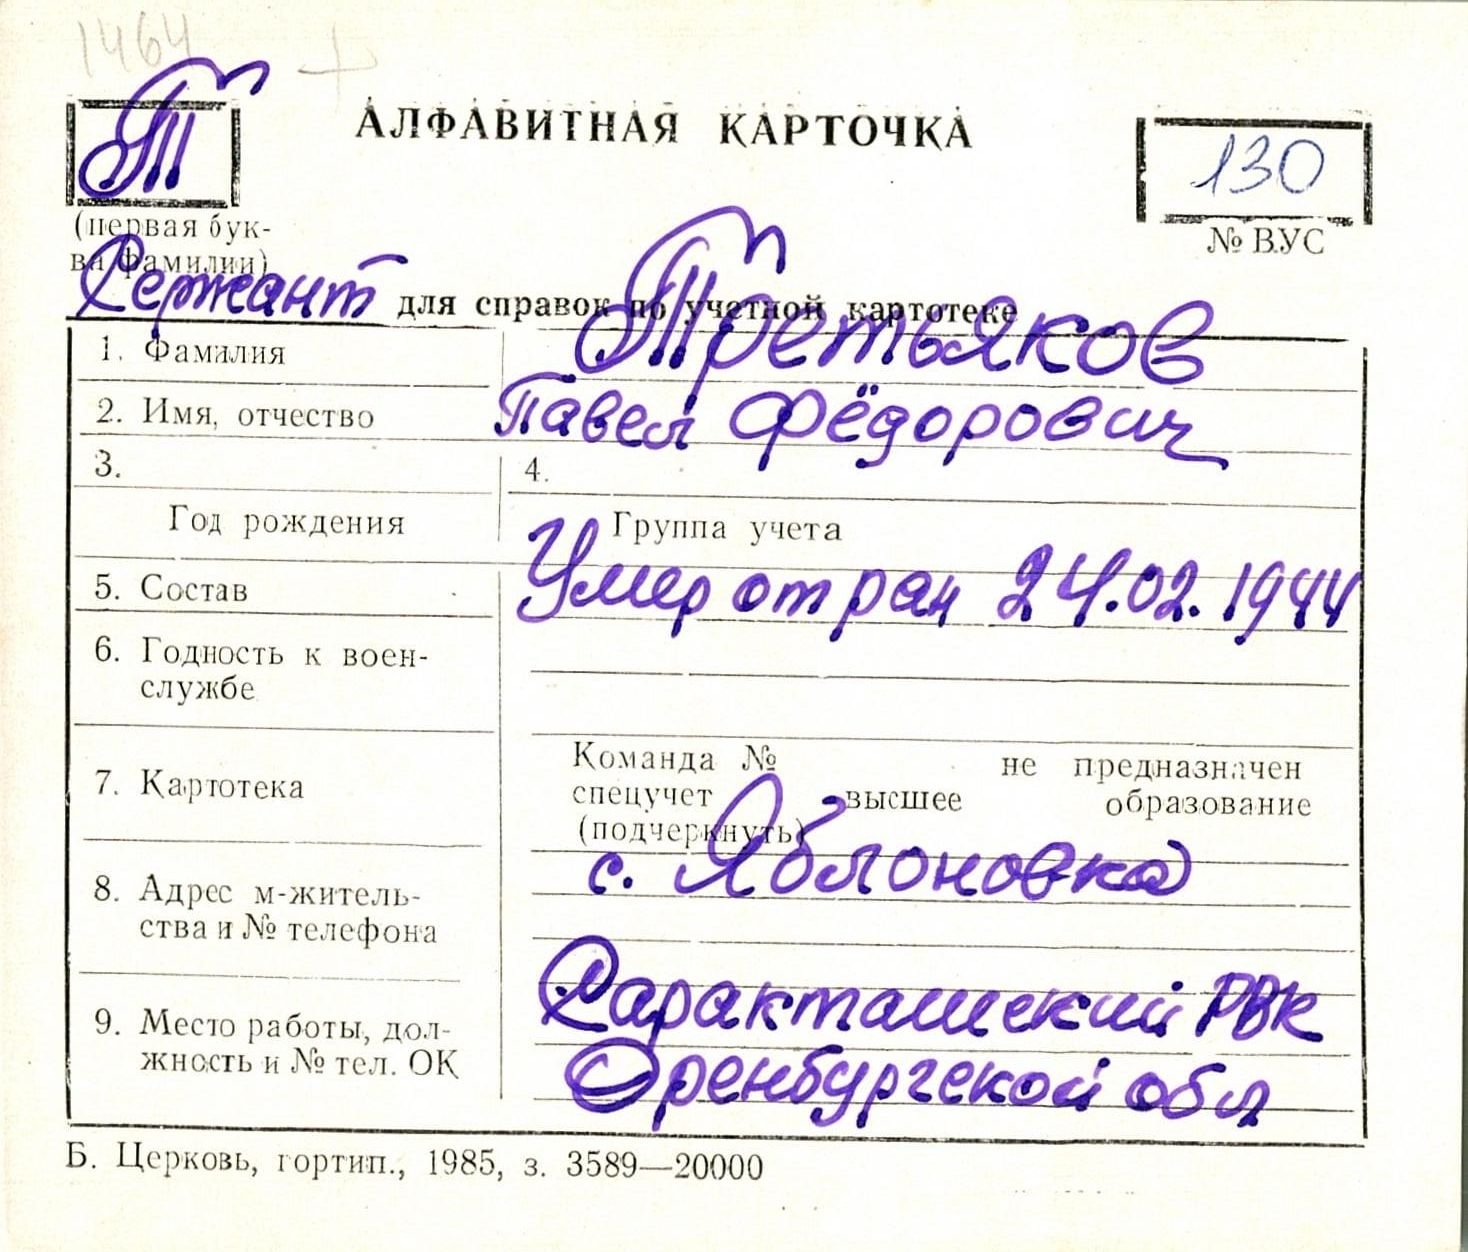 1464
Т
АЛФАВИТНАЯ КАРТОЧКА
130
(первая бук-
ва фамилии)
№ ВУС
Сержант для справок по учетной картотеке
1. Фамилия Третьяков
2. Имя, отчество Павел Фёдорович
3. 4.
Год рождения Группа учета
5. Состав Умер от ран 24.02.1944
6. Годность к воен-
службе
Команда № не предназначен
7. Картотека спецучет высшее образование
(подчеркнуть)
с. Яблоновка
8. Адрес м-житель-
ства и № телефона
Саракташский РВК
9. Место работы, дол-
жность и № тел. ОК Оренбургской обл
Б. Церковь, гортип., 1985, з. 3589—20000